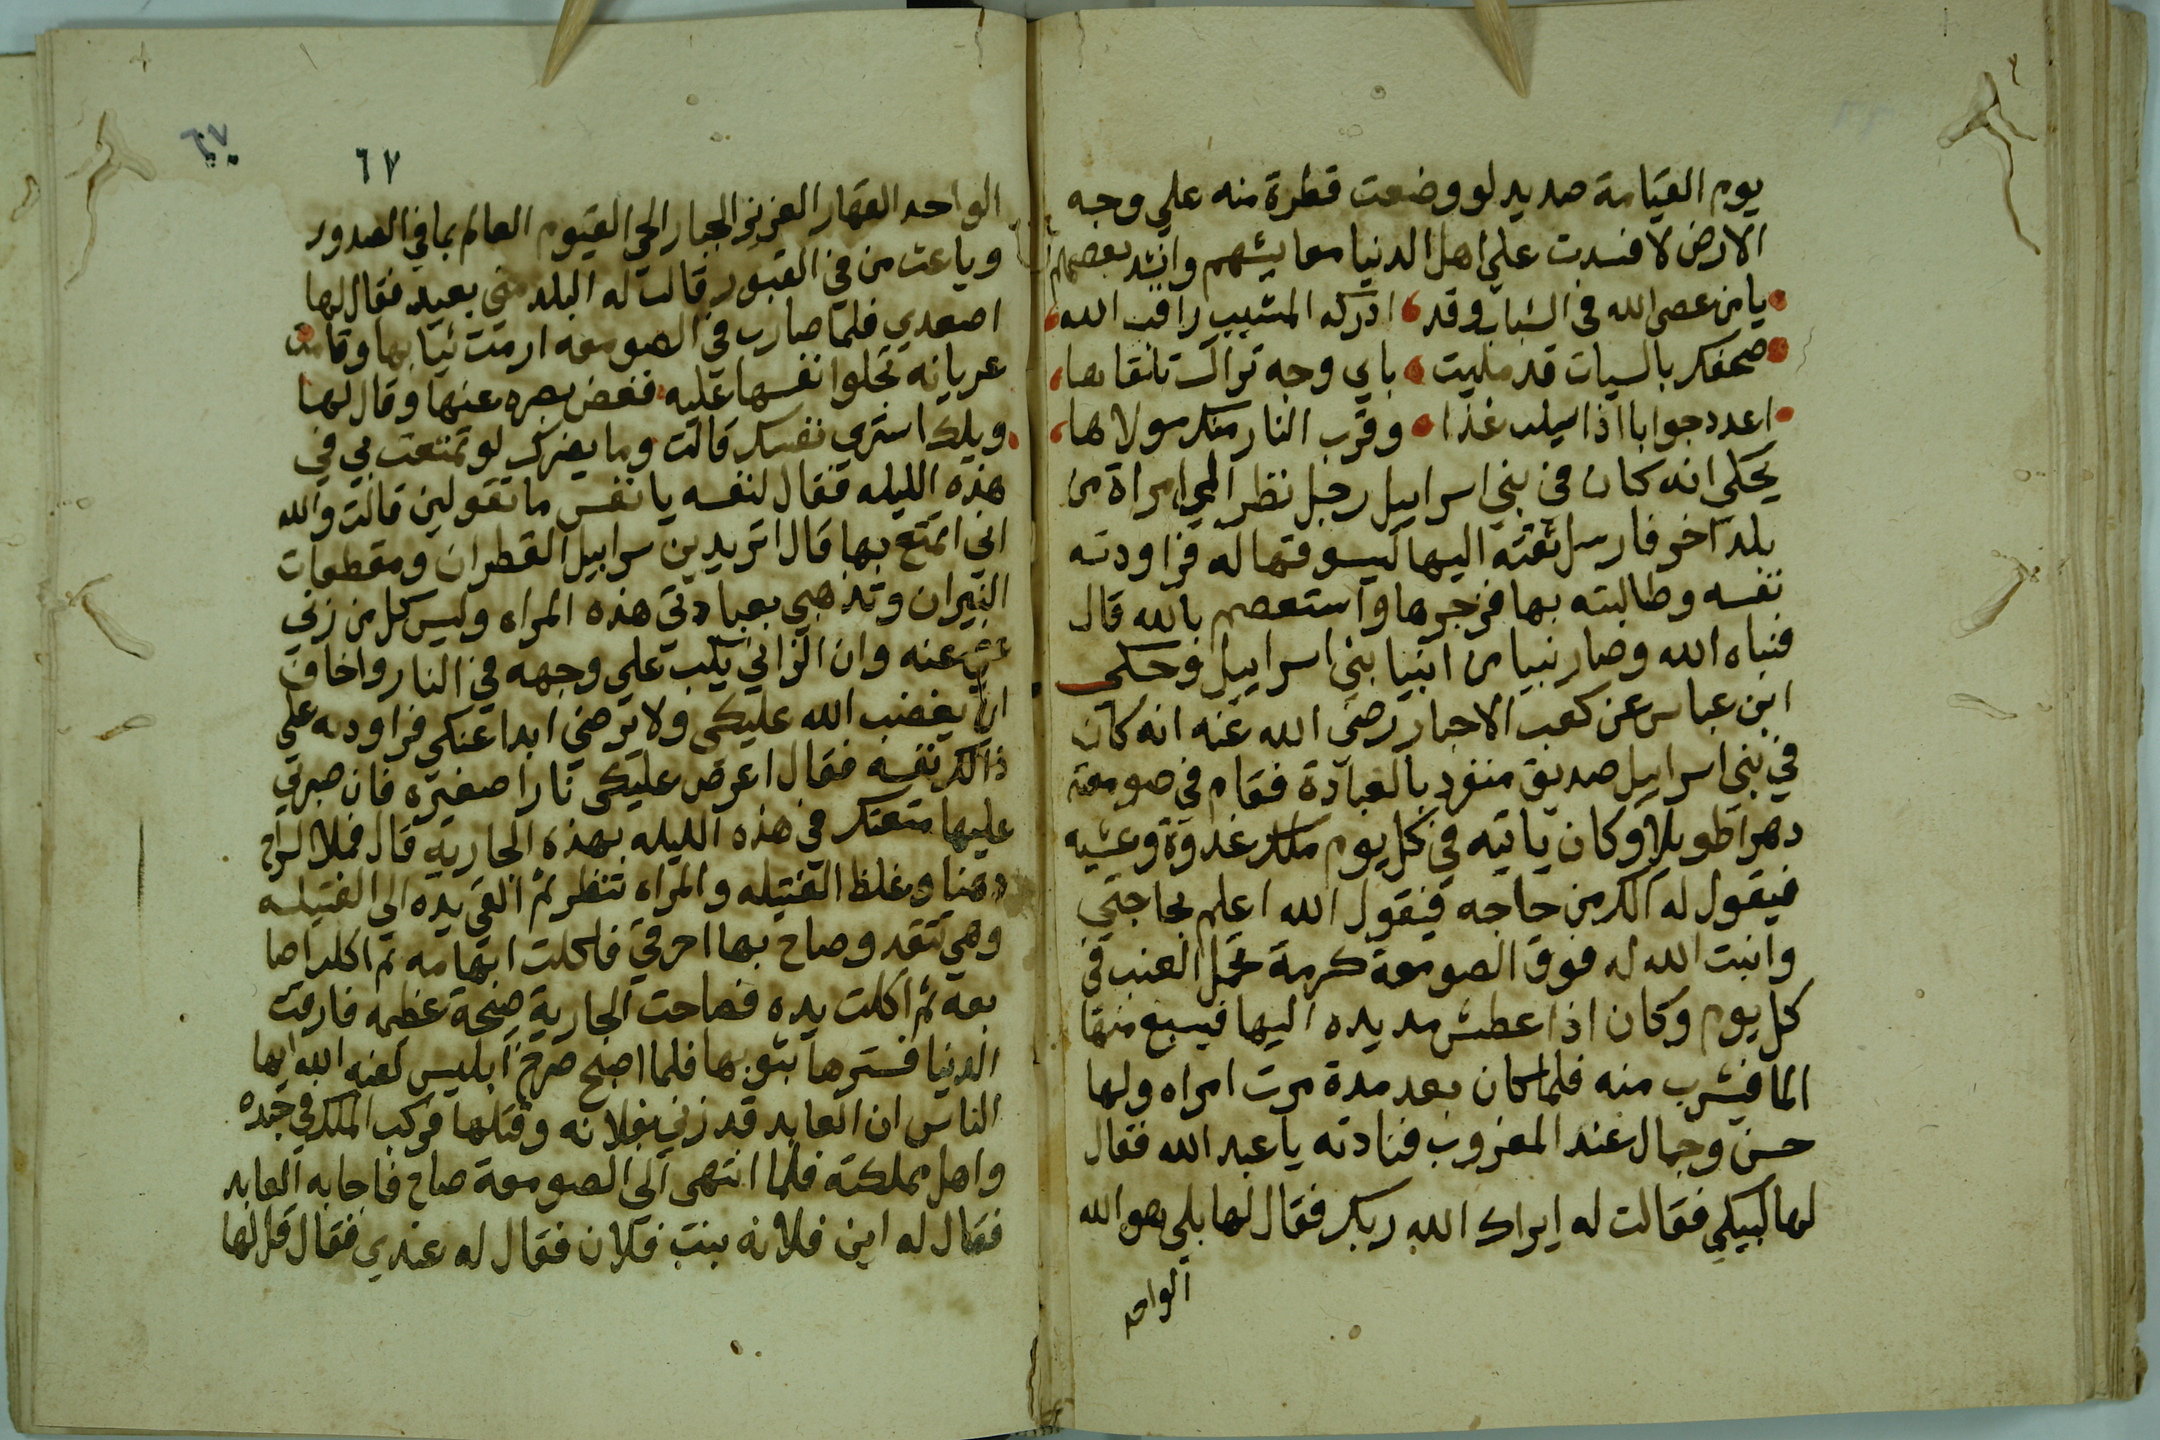 يوم القيامة صديد لو وضعت قطرة منه علي وجه
الارض لافسدت علي اهل الدنيا معايشهم وانشد بعضهم
يا من عصى الله في الشباب وقد ادركه المشيب راقب الله
صحفك بالسيات قد مليت باي وجه تراك تلقاها
اعدد جوابا اذا سيلت غدا وقرب النار منك مولاها
يحكي انه كان في بني اسراييل رجل نظر الي امراة من
بلد اخر فارسل ثقته اليها ليسوقها له فراودته
نفسه وطالبته بها فزجرها واستعصم بالله قال
فنباه الله وصار نبيا من انبيا بني اسراييل وحكي
ابن عباس عن كعب الاحبار رضى الله عنه انه كان
في بني اسراييل صديق منفرد بالعبادة فقام في صومعة
دهرا طويلا وكان ياتيه في كل يوم ملك غدوة وعشيه
فيقول له الك من حاجه فيقول الله اعلم بحاجتي
وانبت الله له فوق الصومعة كرمة تحمل العنب في
كل يوم وكان اذا عطش مد يده اليها فينبع منها
الما فيشرب منه فلما كان بعد مدة مرت امراه ولها
حسن وجمال عند المغروب فنادته يا عبد الله فقال
لها لبيكي فقالت له ايراك الله ربك فقال لها بلي هو الله
الواحد
٦٧
٦٧
الواحد القهار العزيز الجبار الحي القيوم العالم بما في الصدور
وباعث من في القبور قالت له البلد مني بعيد فقال لها
اصعدي فلما صارت في الصومعه ارمت ثيابها وقامت
عريانه تجلوا نفسها عليه فغض بصره عنها وقال لها
ويلك استري نفسك قالت وما يضرك لو تمتعت بي في
هذه الليله فقال لنفسه يا نفس ما تقولين قالت والله
اني اتمتع بها قال اتريدين سرابيل القطران ومقطعات
النيران وتذهبي بعبادتي هذه المراه وليس كل من زني
عفي عنه وان الزاني يكب علي وجهه في النار واخاف
ان يغضب الله عليكي ولا يرضي ابدا عنكي فراودته علي
ذالك نفسه فقال اعرض عليكي نارا صغيره فان صبرتي
عليها متعتك في هذه الليله بهذه الجارية قال فملا السراج
دهنا وغلظ الفتيله والمراه تنظر ثم القي يده الي الفتيله
وهي تتقد وصاح بها احرقي فاكلت ابهامه ثم اكلت اصا
بعه ثم اكلت يده فصاحت الجارية صيحة عظيمه فارقت
الدنيا فسترها بثوبها فلما اصبح صرخ ابليس لعنه الله ايها
الناس ان العابد قد زني بفلانه وقتلها فركب الملك في جنده
واهل مملكته فلما انتهى الى الصومعة صاح فاجابه العابد
فقال له اين فلانه بنت فلان فقال له عندي فقال قل لها